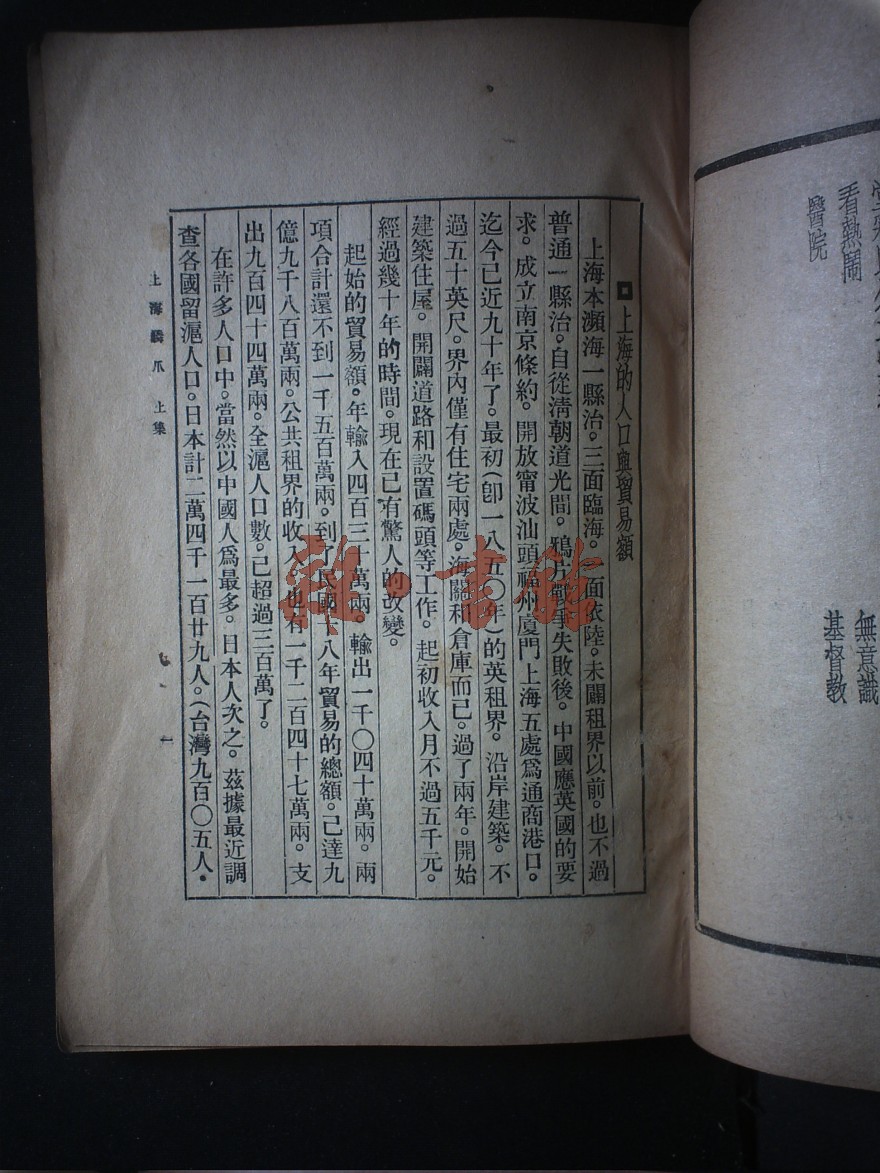 看熱鬧
醫院
無意識
基督教
上海的人口與貿易額
上海本瀕海一縣治。三面臨海。一面依陸。未闢租界以前。也不過
普通一縣治。自從淸朝道光間。鴉片戰爭失敗後。中國應英國的要
求。成立南京條約。開放甯波汕頭福州廈門上海五處爲通商港口。
迄今已近九十年了。最初(卽一八五〇年)的英租界。沿岸建築。不
過五十英尺。界內僅有住宅兩處。海關和倉庫而已。過了兩年。開始
建築住屋。開闢道路和設置碼頭等工作。起初收入月不過五千元。
經過幾十年的時間。現在已有驚人的改變。
起始的貿易額。年輸入四百三十萬兩。輸出一千〇四十萬兩。兩
項合計還不到一千五百萬兩。到了民國十八年貿易的總額。已達九
億九千八百萬兩。公共租界的收入。也有一千二百四十七萬兩。支
出九百四十四萬兩。全滬人口數。已超過三百萬了。
在許多人口中。當然以中國人爲最多。日本人次之。茲據最近調
查各國留滬人口。日本計二萬四千一百廿九人。(台灣九百〇五人。
上海鱗爪 上集
一
雜·書館